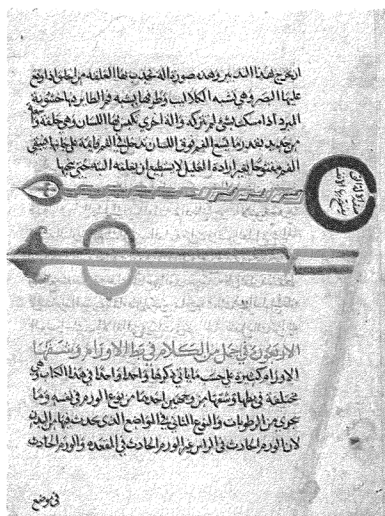 ان يخرج بهذا التدبير وهذه صورة الة تجذب بها العلقة من الحلق اذا وقع
عليها البصر وهي تشبه الكلاليب وطرفها يشبه فم الطاير فيها خشونة
المبرد اذا امسكت بشي لم تتركه والة اخرى تكبس بها اللسان وهي حلقة
من حديد بقدر ما يسع الفم فوق اللسان تدخل في الفم قايمة على جانبها فيبقى
الفم مفتوحا بغير ارادة العليل لا يستطيع ان يغلقه البتة حتى
الاربعون في جمل من الكلام في بط الاورام وشقها
الاورام كثيرة على حسب ما ياتي ذكرها واحدا واحدا في هذا الكتاب وهي
مختلفة في بطها وشقها من وجهين احدهما من نوع الورم في نفسه وما
يحوي من الرطوبات والنوع الثاني في المواضع الذي تحدث فيها من البدن
لان الورم الحادث في الراس غير الورم الحادث في المقعدة والورم الحادث
في وضع